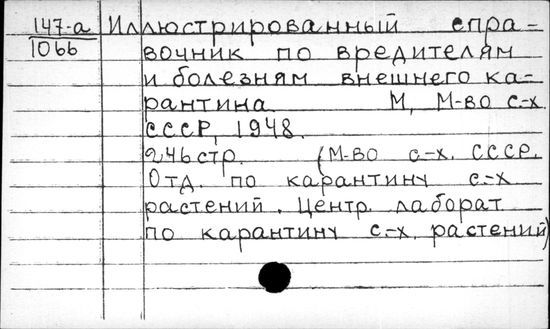 147-а Иллюстрированный спра-
1066 вочник по вредителям
и болезням внешнего ка-
рантина М, М-во с.-х
СССР, 1948.
246 стр. (М-во с.-х. СССР.
Отд. по карантину с.-х
растений. Центр. лаборат
по карантину с.-х. растений)